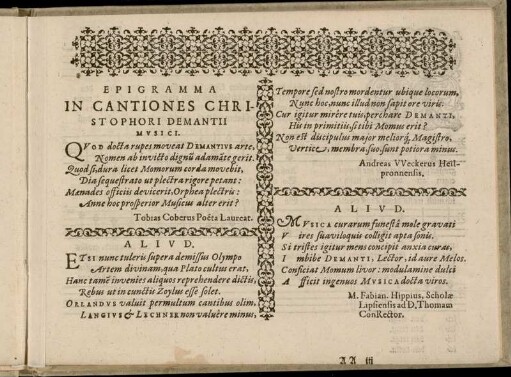 EPIGRAMMA
IN CANTIONES CHRI-
STOPHORI DEMANTII
MVSICI.
QVOD docta rupes moveas DEMANTIVS arte,
Nomen ab invicto dignū adamāte gerit.
Quod si dura lices Momorum corda movebis,
Dia sequestrato ut plectra rigore petant:
Mænades officiis devicerit, Orphea plectrū:
Anne hoc prosperior Musicus alter erit?
Tobias Coberus Poëta Laureat.
ALIVD.
ETSI nunc tuleris supera demissus Olympo
Artem divinam, qua Plato cultus erat,
Hanc tamē invenies aliquos reprehendere dictis,
Rebus ut in cunctis Zoylus esse solet.
ORLANDVS valuit permultum cantibus olim,
LANGIVS & LECHNER non valuēre minus,
Tempore sed nostro mordentur ubique locorum,
Nunc hoc, nunc illud non sapit ore viris:
Cur igitur mirēre tuis, perchare DEMANTI,
His in primitiis, si tibi Momus erit?
Non est discipulus major meliorq́; Magistro,
Vertice, membra, suo, sunt potiora minus.
Andreas VVeckerus Heil-
pronnensis.
ALIVD.
MVSICA curarum funestā mole gravati
Vires suaviloquis colligit apta sonis.
Si tristes igitur mens concipit anxia curas,
Imbibe DEMANTI, Lector, id aure Melos.
Conficiat Momum livor: modulamine dulci
Afficit ingenuos MVSICA docta viros.
M. Fabian. Hippius, Scholæ
Lipsiensis ad D. Thomam
ConRector.
AA iii